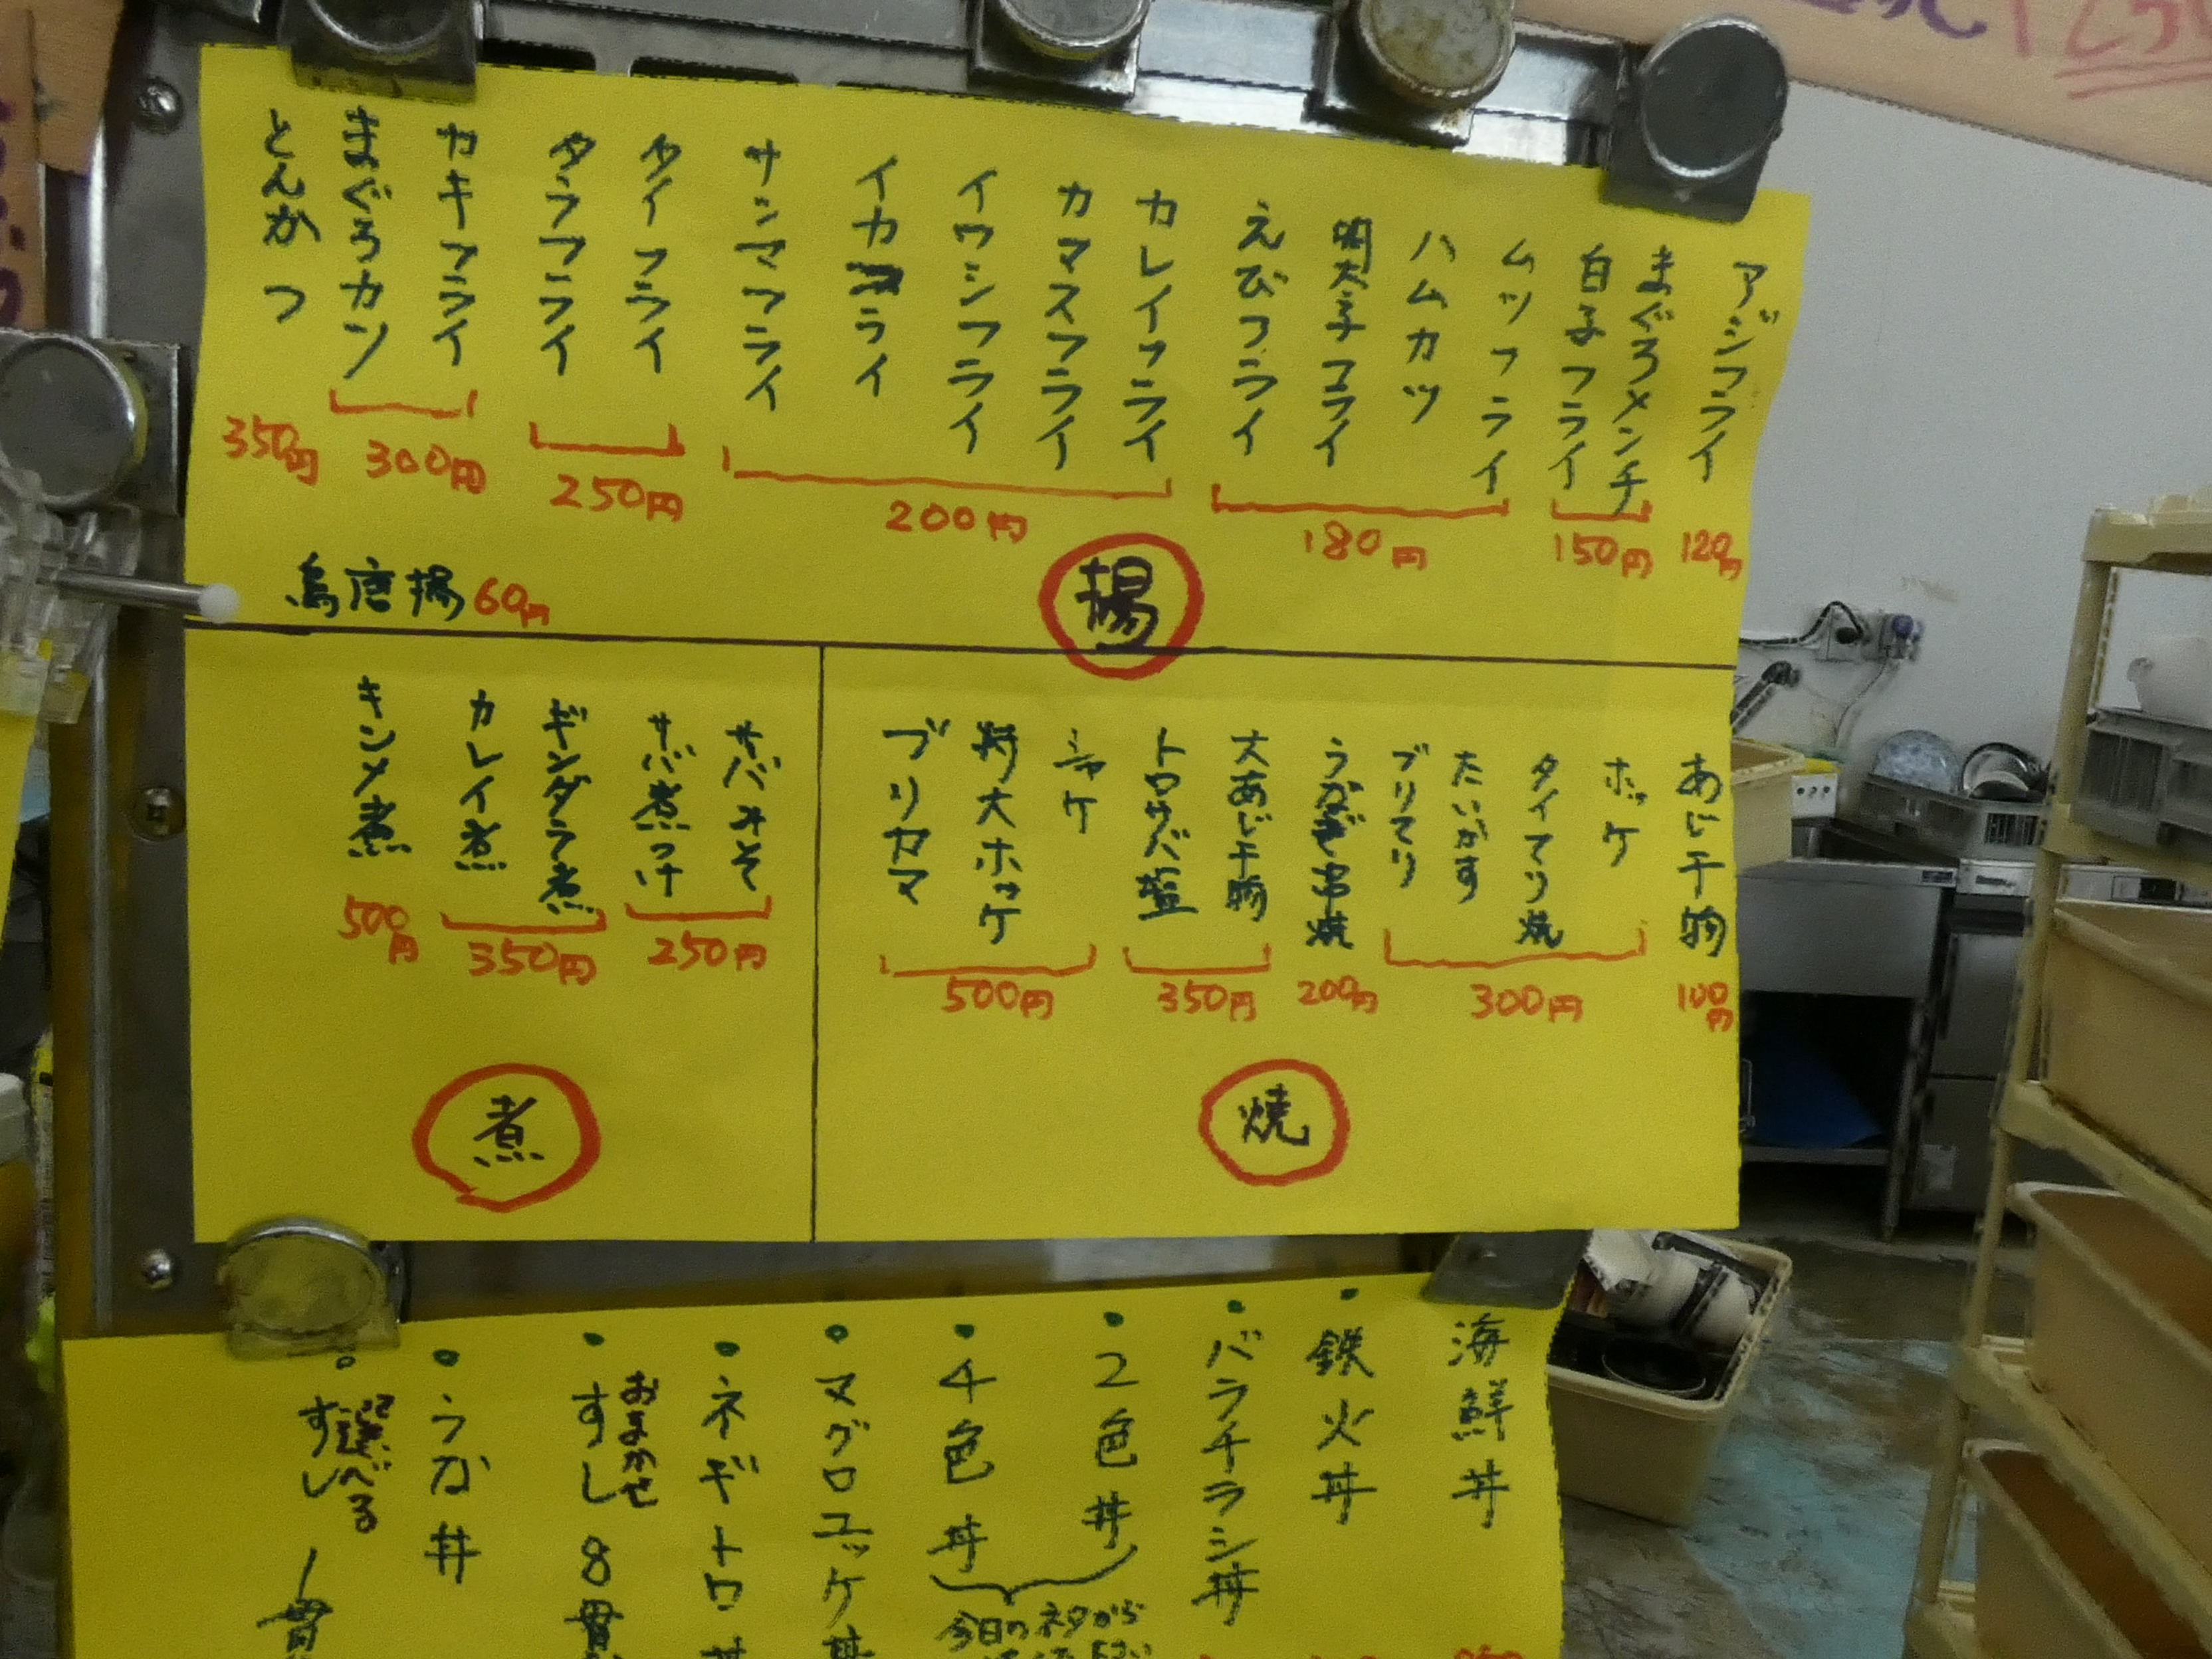 アジフライ
120円
まぐろメンチ
白子フライ
150円
ムツフライ
ハムカツ
明太子フライ
えびフライ
180円
カレイフライ
カマスフライ
イワシフライ
イカフライ
サンマフライ
200円
タイフライ
タラフライ
250円
カキフライ
まぐろカツ
300円
とんかつ
350円
鳥唐揚60円
揚
あじ干物
100円
ホッケ
タイてり焼
たいかす
ブリてり
300円
うなぎ串焼
200円
大あじ干物
トロサバ塩
350円
シャケ
特大ホッケ
ブリカマ
500円
焼
サバみそ
サバ煮つけ
250円
ギンダラ煮
カレイ煮
350円
キンメ煮
500円
煮
海鮮丼
・鉄火丼
・バラチラシ丼
・2色丼
・4色丼
今日のネタから
・マグロユッケ丼
・ネギトロ丼
・おまかせ
すし8貫
・うな丼
・選べる
すし1貫